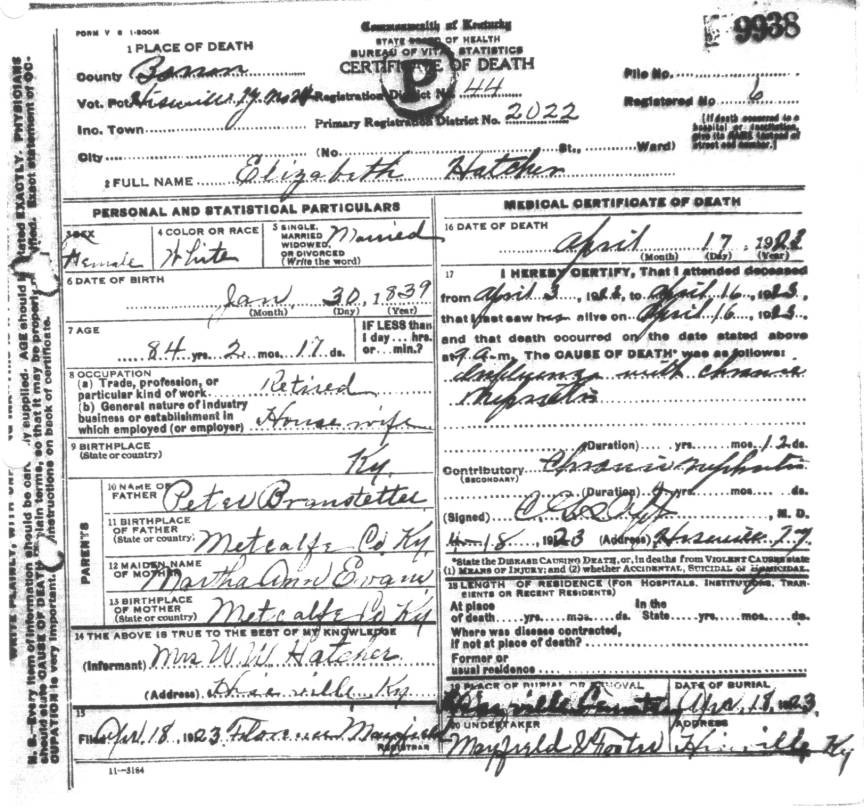 FORM V S 1-500M
Commonwealth of Kentucky
STATE BOARD OF HEALTH
BUREAU OF VITAL STATISTICS
CERTIFICATE OF DEATH
P
9938
1 PLACE OF DEATH
County Barren
Vot. Pct Hiseville Ky No 24 Registration District No. 44
Inc. Town Primary Registration District No. 2022
File No.
Registered No 6
(If death occurred in a hospital or institution, give its NAME instead of street and number.)
City (No. St., Ward)
2 FULL NAME Elizabeth Hatcher
PERSONAL AND STATISTICAL PARTICULARS
3 SEX
Female
4 COLOR OR RACE
White
5 SINGLE, MARRIED WIDOWED, OR DIVORCED (Write the word)
Married
6 DATE OF BIRTH
Jan 30, 1839
(Month) (Day) (Year)
7 AGE
84 yrs. 2 mos. 17 ds.
IF LESS than 1 day ... hrs. or ... min.?
8 OCCUPATION
(a) Trade, profession, or particular kind of work Retired
(b) General nature of industry business or establishment in which employed (or employer) House wife
9 BIRTHPLACE
(State or country) Ky.
PARENTS
10 NAME OF FATHER Peter Branstetter
11 BIRTHPLACE OF FATHER (State or country) Metcalfe Co Ky.
12 MAIDEN NAME OF MOTHER Martha Ann Evans
13 BIRTHPLACE OF MOTHER (State or country) Metcalfe Co Ky
14 THE ABOVE IS TRUE TO THE BEST OF MY KNOWLEDGE
(Informant) Mrs W. W. Hatcher
(Address) Hiseville Ky.
15
Filed Apr. 18, 1923 Florence Mayfield
REGISTRAR
11-3184
MEDICAL CERTIFICATE OF DEATH
16 DATE OF DEATH
April 17, 1923
(Month) (Day) (Year)
17 I HEREBY CERTIFY, That I attended deceased
from April 3, 1923, to April 16, 1923,
that I last saw her alive on April 16, 1923,
and that death occurred on the date stated above
at 9 A. m. The CAUSE OF DEATH* was as follows:
Influenza with chronic
nephritis
(Duration) yrs. mos. 12 ds.
Contributory Chronic nephritis
(SECONDARY)
(Duration) yrs. mos. ds.
(Signed) M. D.
18 1923 (Address) Hiseville Ky.
*State the DISEASE CAUSING DEATH, or, in deaths from VIOLENT CAUSES state (1) MEANS OF INJURY; and (2) whether ACCIDENTAL, SUICIDAL or HOMICIDAL.
18 LENGTH OF RESIDENCE (FOR HOSPITALS, INSTITUTIONS, TRANSIENTS OR RECENT RESIDENTS)
At place of death yrs. mos. ds. In the State yrs. mos. ds.
Where was disease contracted, if not at place of death?
Former or usual residence
19 PLACE OF BURIAL OR REMOVAL
DATE OF BURIAL
Apr. 18, 1923.
20 UNDERTAKER
Mayfield & Foster
ADDRESS
Hiseville Ky